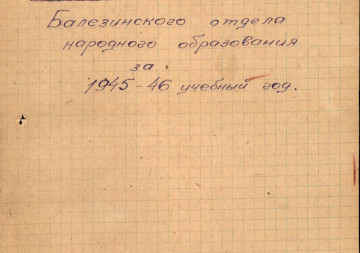 Балезинского отдела
народного образования
за
1945-46 учебный год.